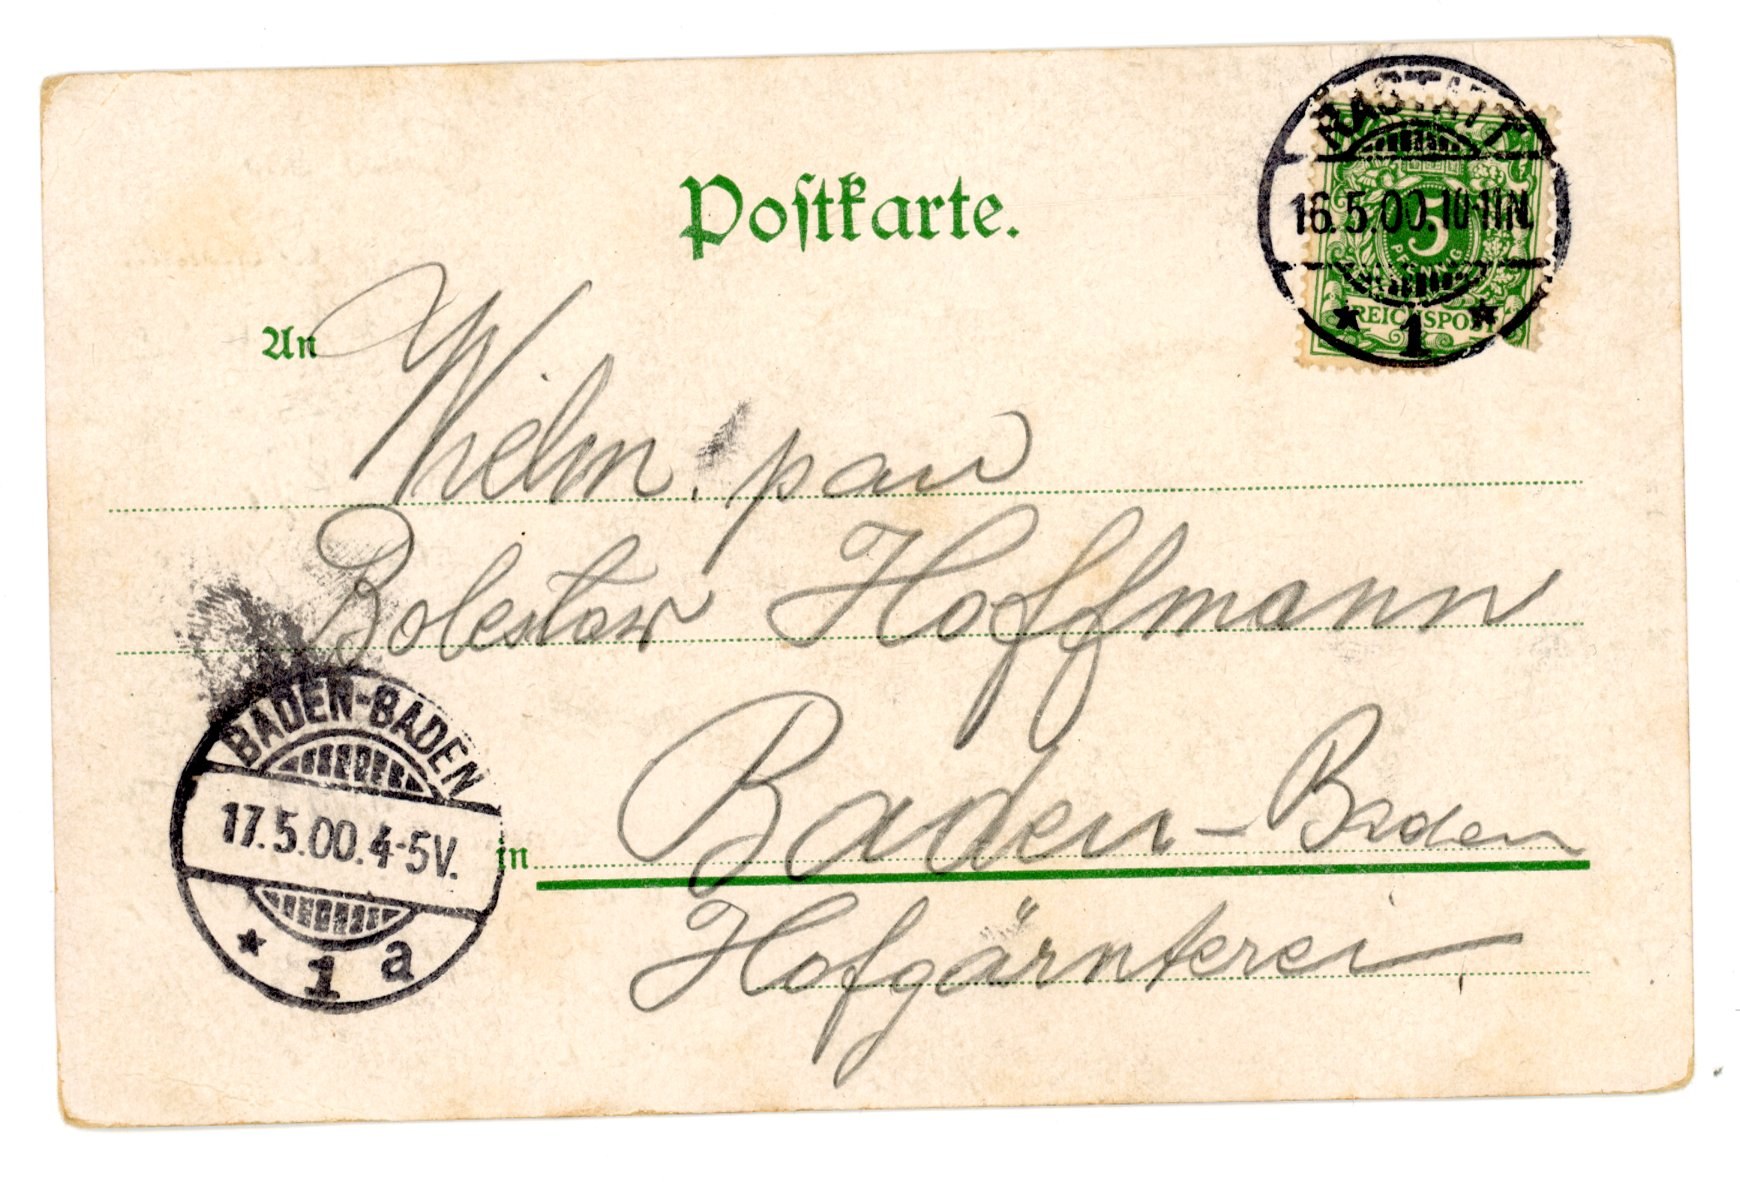 Postkarte.
RASTATT
16.5.00.10-11N.
1
5
PFENNIG
REICHSPOST
An
Wielm. pan
Bolesław Hoffmann
BADEN-BADEN
17.5.00.4-5V.
1 a
in Baden-Baden
Hofgärnterei